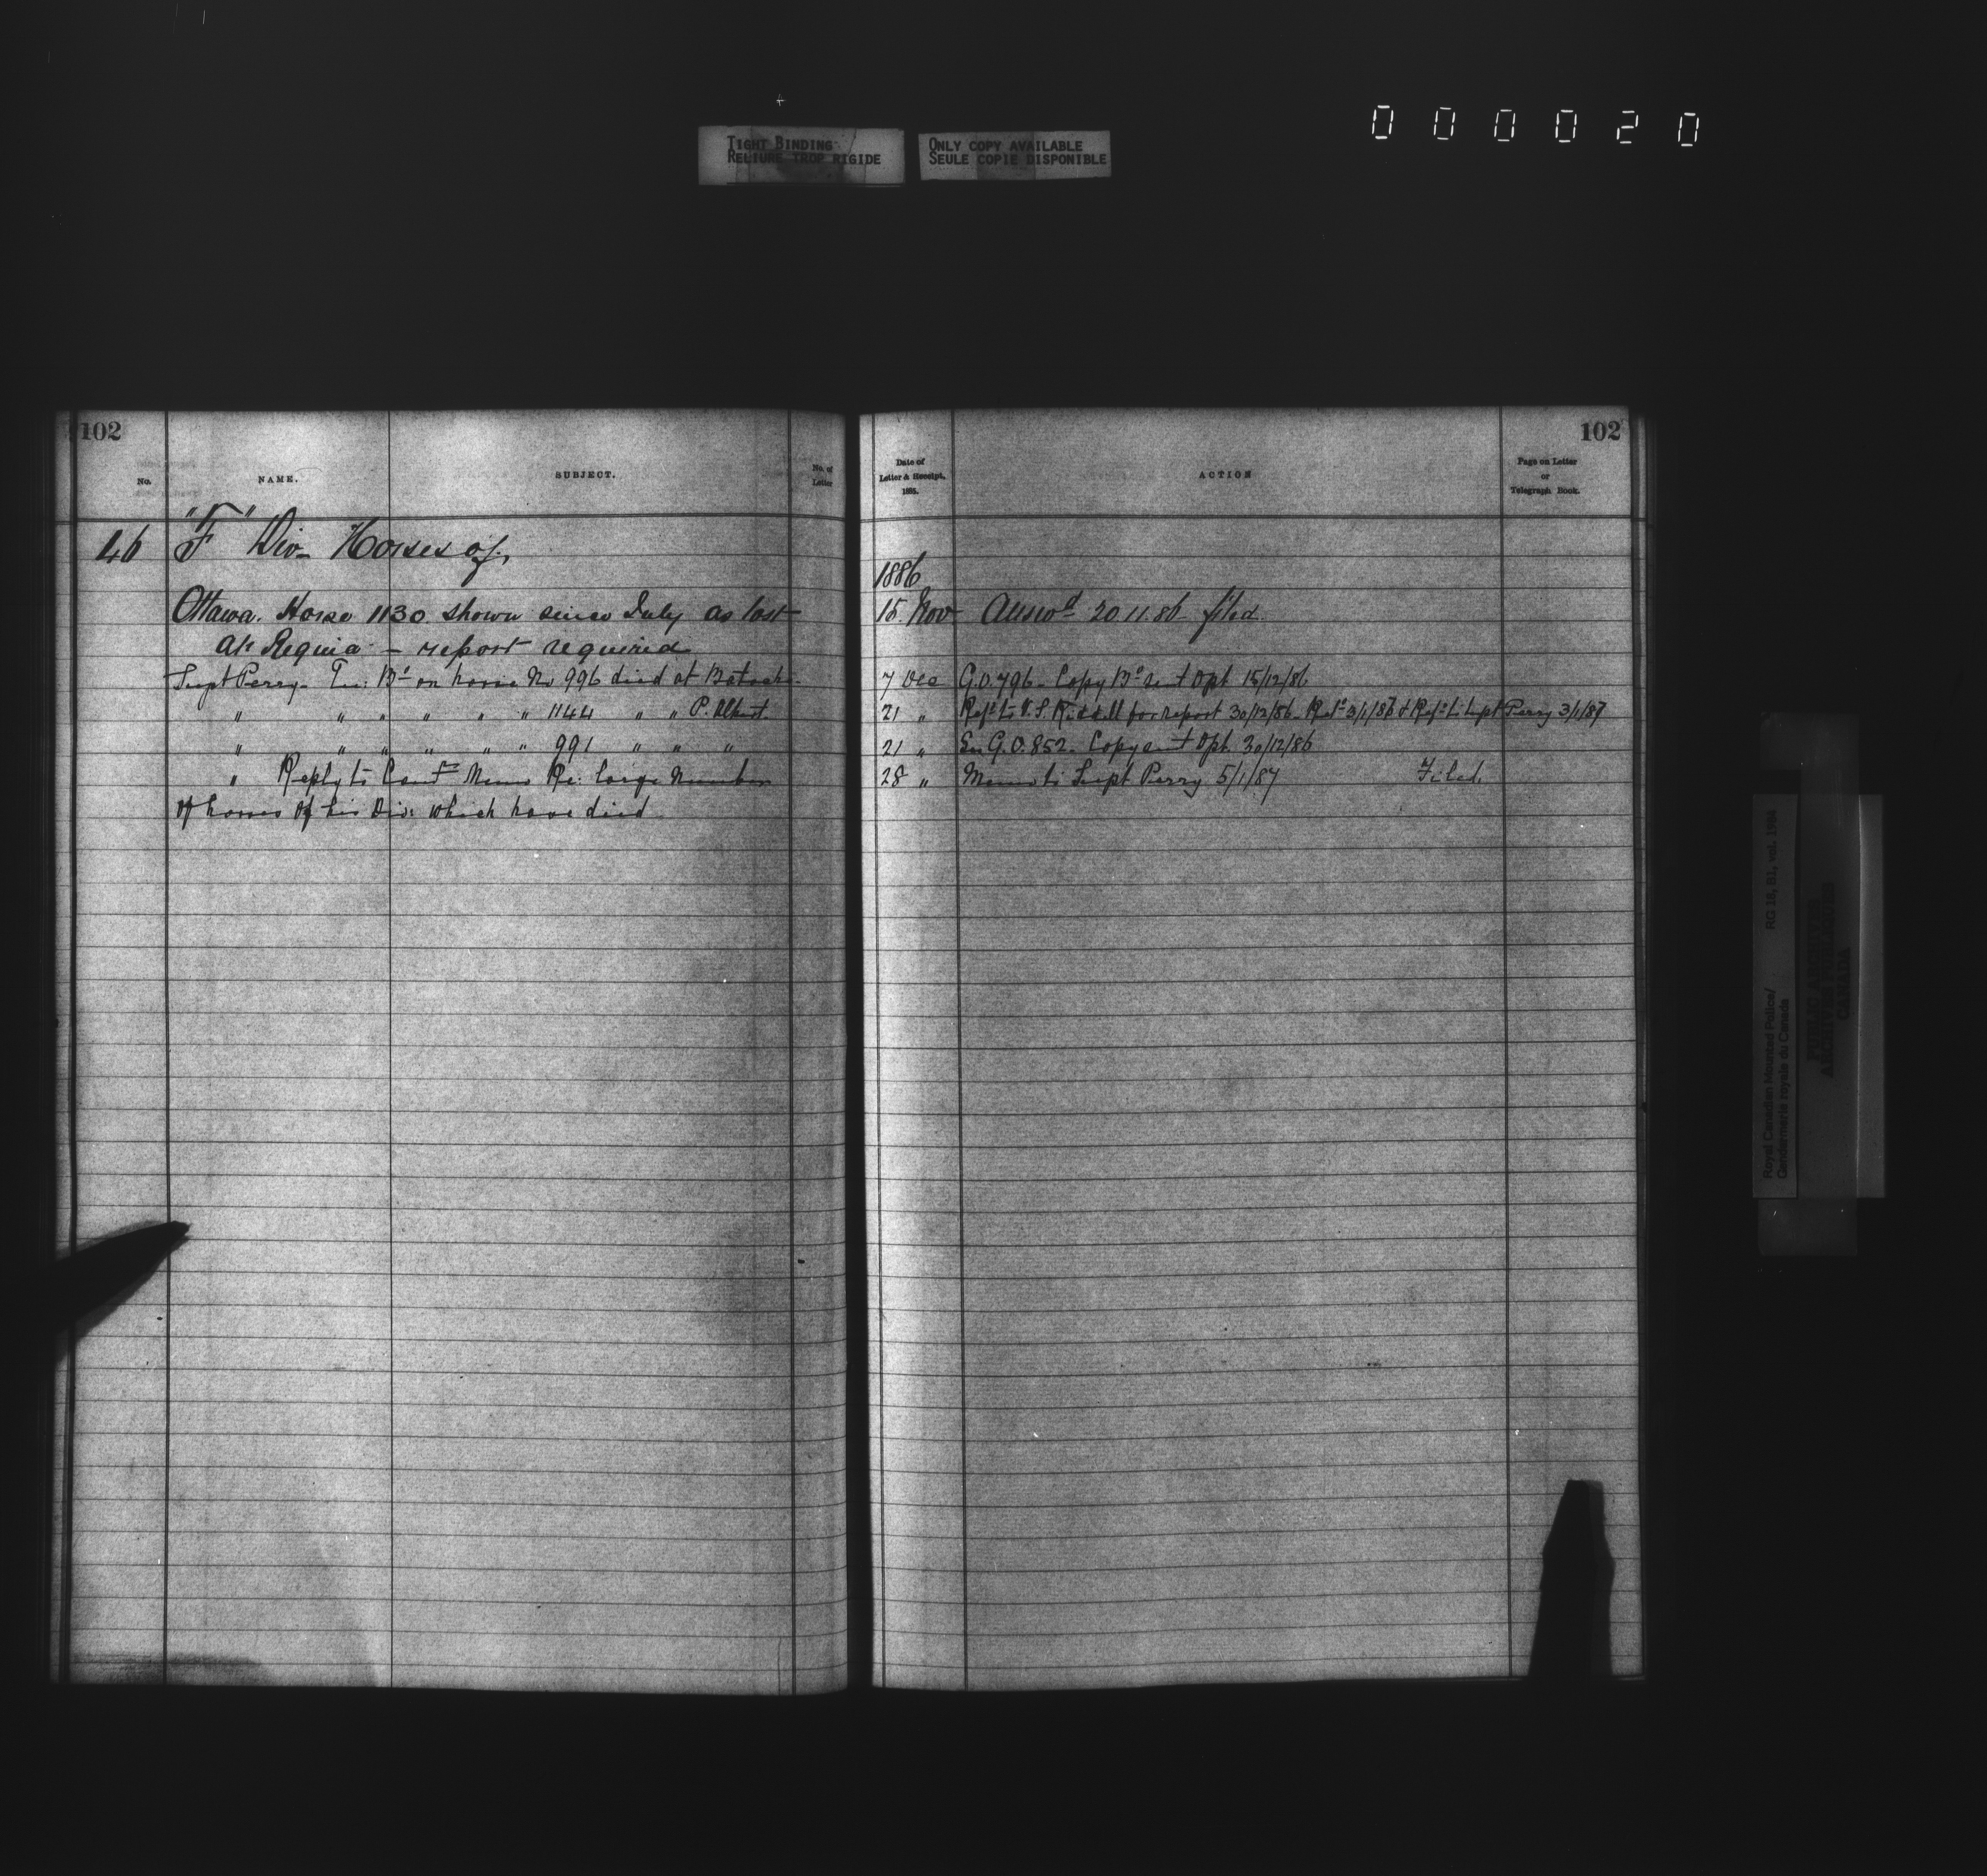 0 0 0 0 2 0
TIGHT BINDING
RELIURE TROP RIGIDE
ONLY COPY AVAILABLE
SEULE COPIE DISPONIBLE
102
No.
NAME.
SUBJECT.
No. of
Letter
46 "F" Div- Horses of.
Ottawa. Horse 1130 shown since July as lost
at Regina - report required
Supt Perry- Bd on horse No 996 died at Batoche
" " " " " " 1144 " " P. Albert.
" " " " " " 991 " " "
" Reply to Memo Re: large number
of horses of his Div: which have died
102
Date of
Letter & Receipt,
1885.
ACTION
Page on Letter
or
Telegraph Book.
1886
15 Nov Answd 20.11.86 filed
7 Dec G.O. 796 - Copy Bd sent Dpt 15/12/86
21 " Refd to V.S. Riddell for report 30/12/86 - Retd 3/1/86 & Refd to Supt Perry 3/1/87
21 " G.O. 852 - Copy sent Dpt. 30/12/86
28 " Memo to Supt Perry 5/1/87 Filed.
Royal Canadian Mounted Police/ RG 18, B1, vol. 1984
Gendarmerie royale du Canada
PUBLIC ARCHIVES
ARCHIVES PUBLIQUES
CANADA